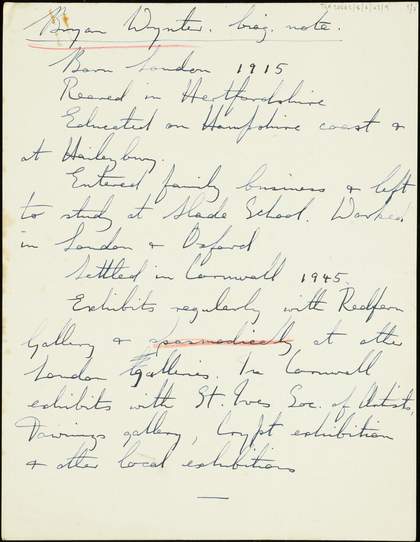 Bryan Wynter. biog. note.
Born London 1915
Reared in Hertfordshire
Educated on Hampshire coast &
at Haileybury.
Entered family business & left
to study at Slade School. Worked
in London & Oxford
Settled in Cornwall 1945.
Exhibits regularly with Redfern
Gallery & spasmodically at other
London Galleries. In Cornwall
exhibits with St. Ives Soc. of Artists,
Downings gallery, Crypt exhibition
& other local exhibitions